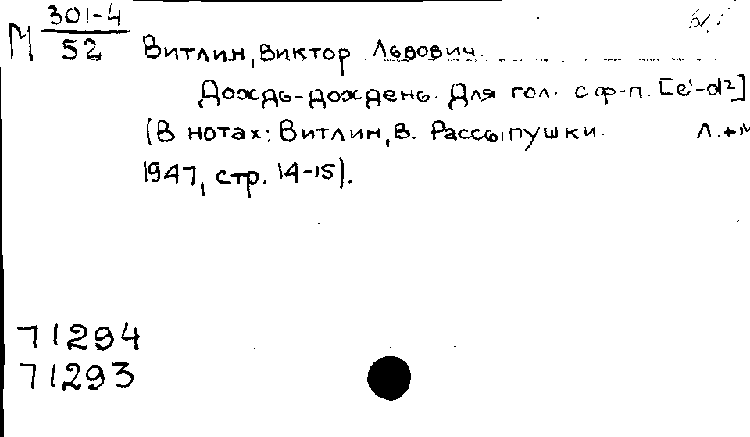 М 301-4
52
Витлин, Виктор Львович
Дождь-дождень. Для гол. с ф-п. [e¹-d²]
(В нотах: Витлин, В. Рассыпушки. Л.+М
1947, стр. 14-15).
71294
71293